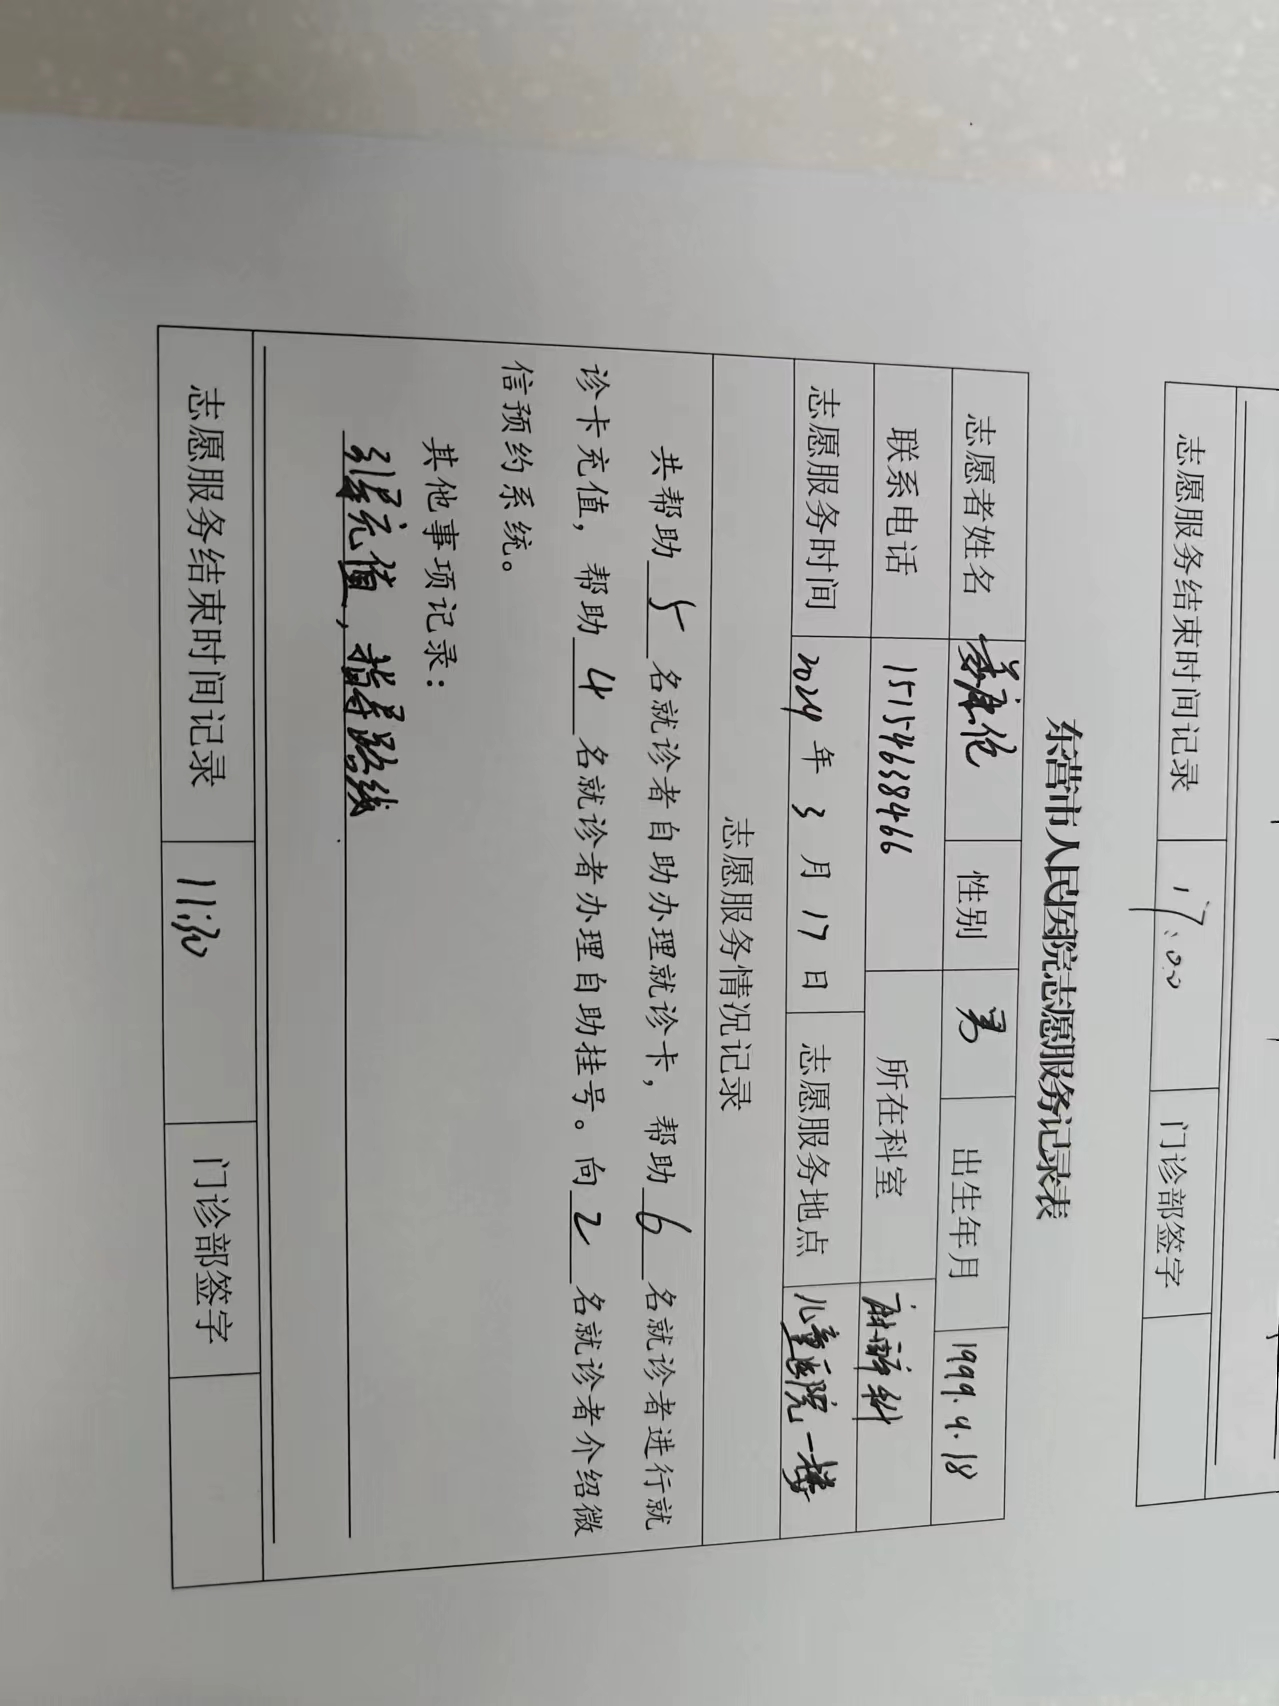 志愿服务结束时间记录 17:00 门诊部签字
东营市人民医院志愿服务记录表
志愿者姓名 性别 男 出生年月 1999.9.18
联系电话 15154638466 所在科室 麻醉科
志愿服务时间 2024年3月17日 志愿服务地点 儿童医院一楼
志愿服务情况记录
共帮助5名就诊者自助办理就诊卡，帮助6名就诊者进行就
诊卡充值，帮助4名就诊者办理自助挂号。向2名就诊者介绍微
信预约系统。
其他事项记录：
引导充值，指导路线
志愿服务结束时间记录 11:30 门诊部签字